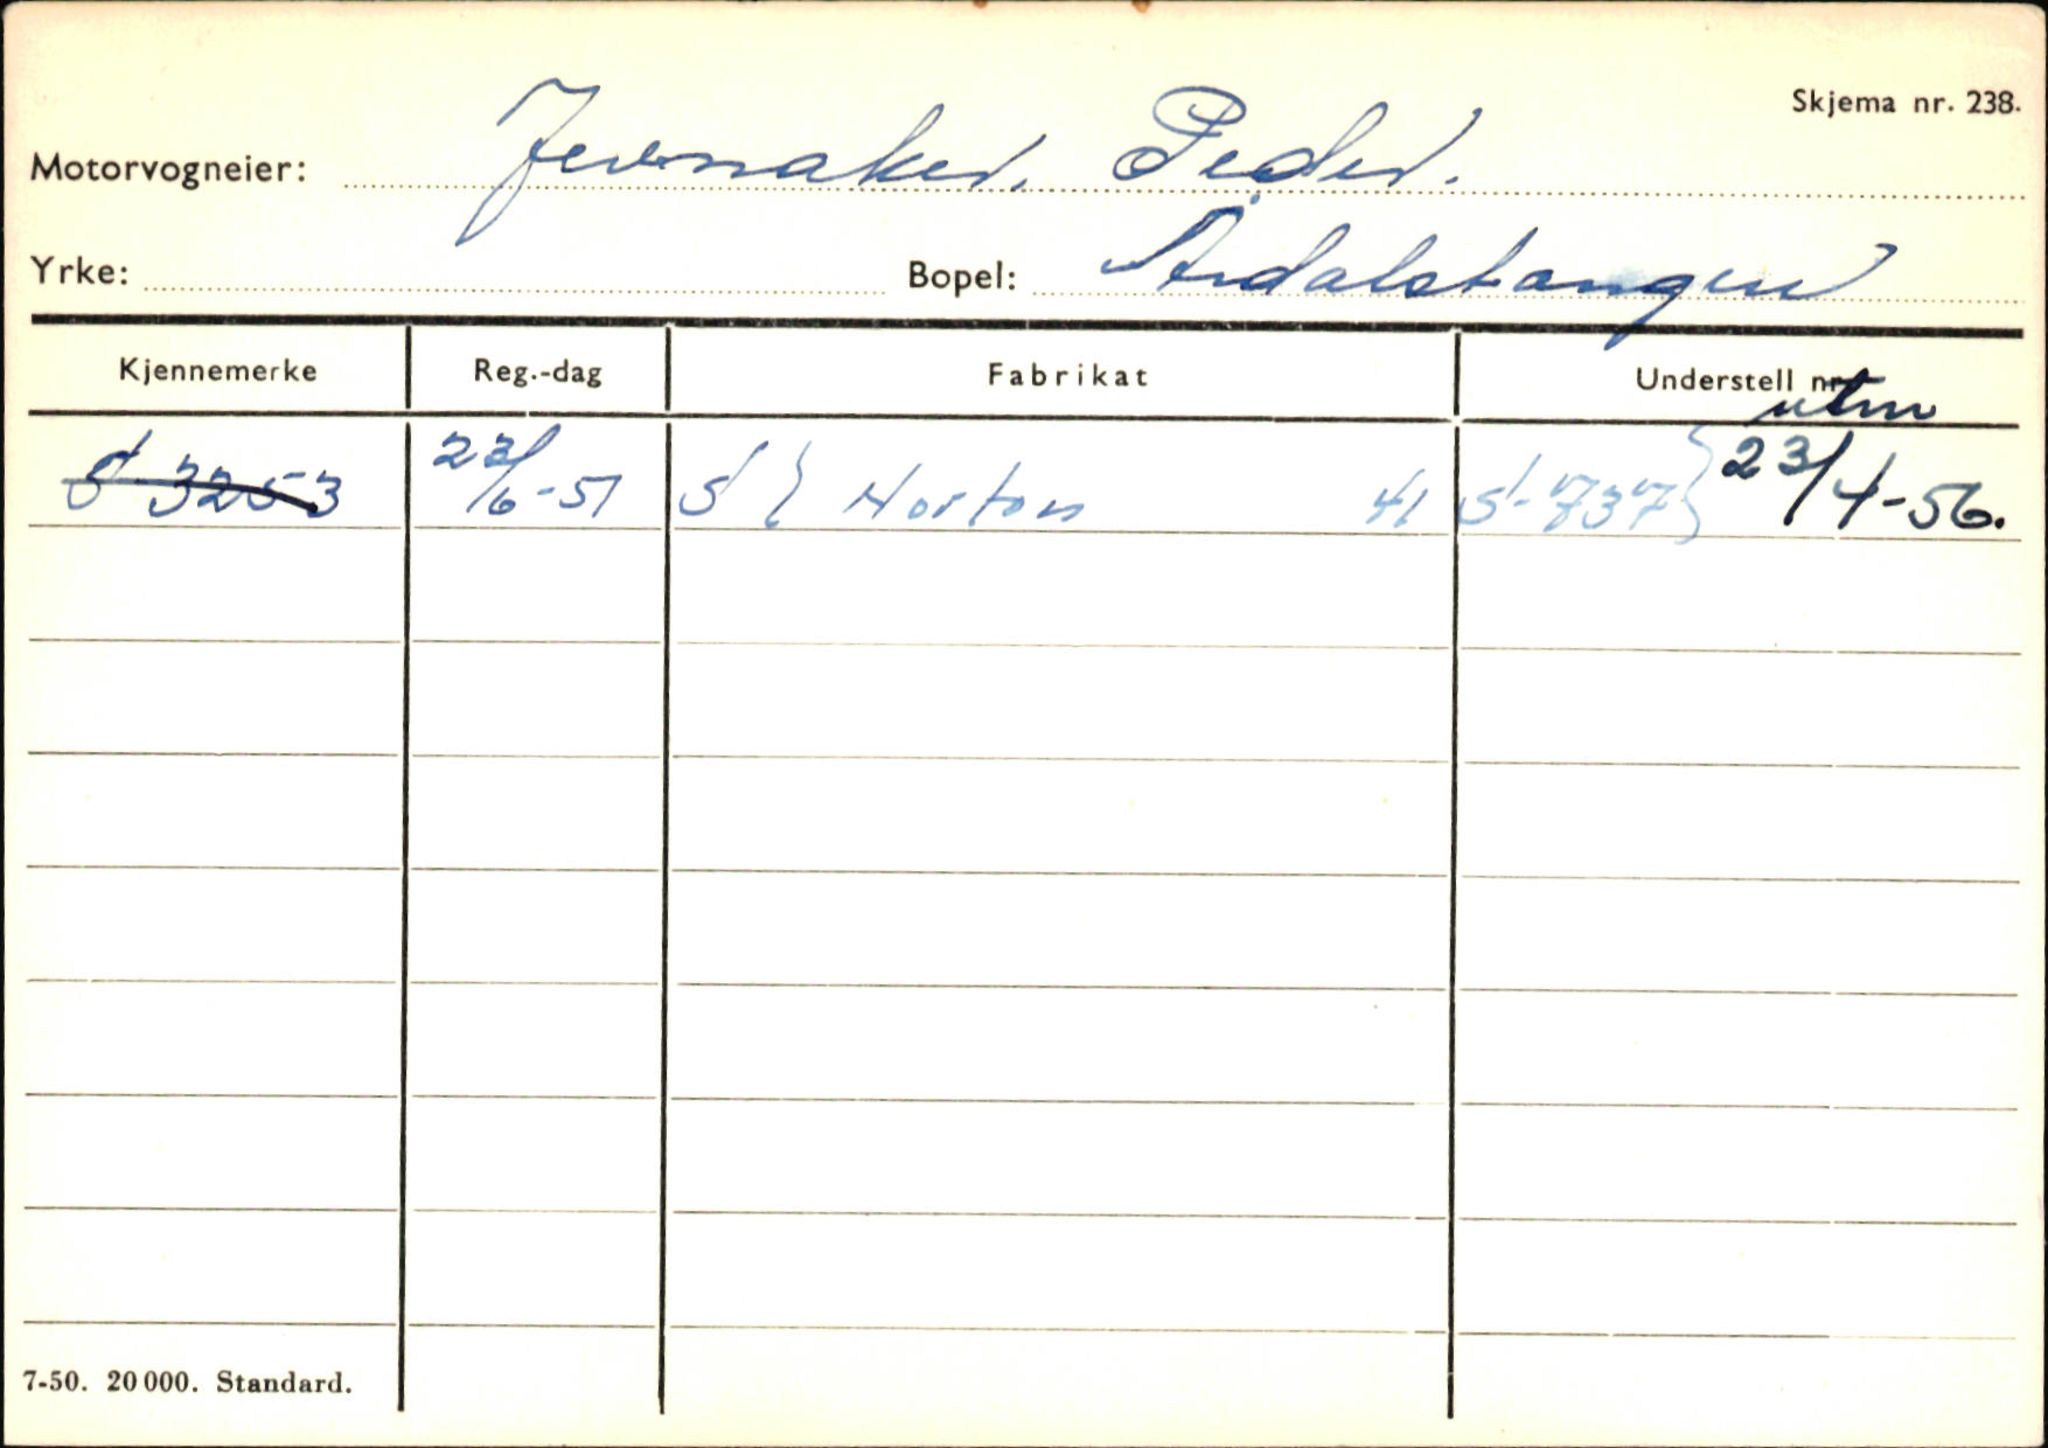 Skjema nr. 238.
Motorvogneier: Jevnaker, Peder.
Yrke: Bopel: Årdalstangen
Kjennemerke Reg.-dag Fabrikat Understell nr.
utm
S 3253 23/6-51 S } Norton 41 S-737 } 23/4-56.
7-50. 20 000. Standard.